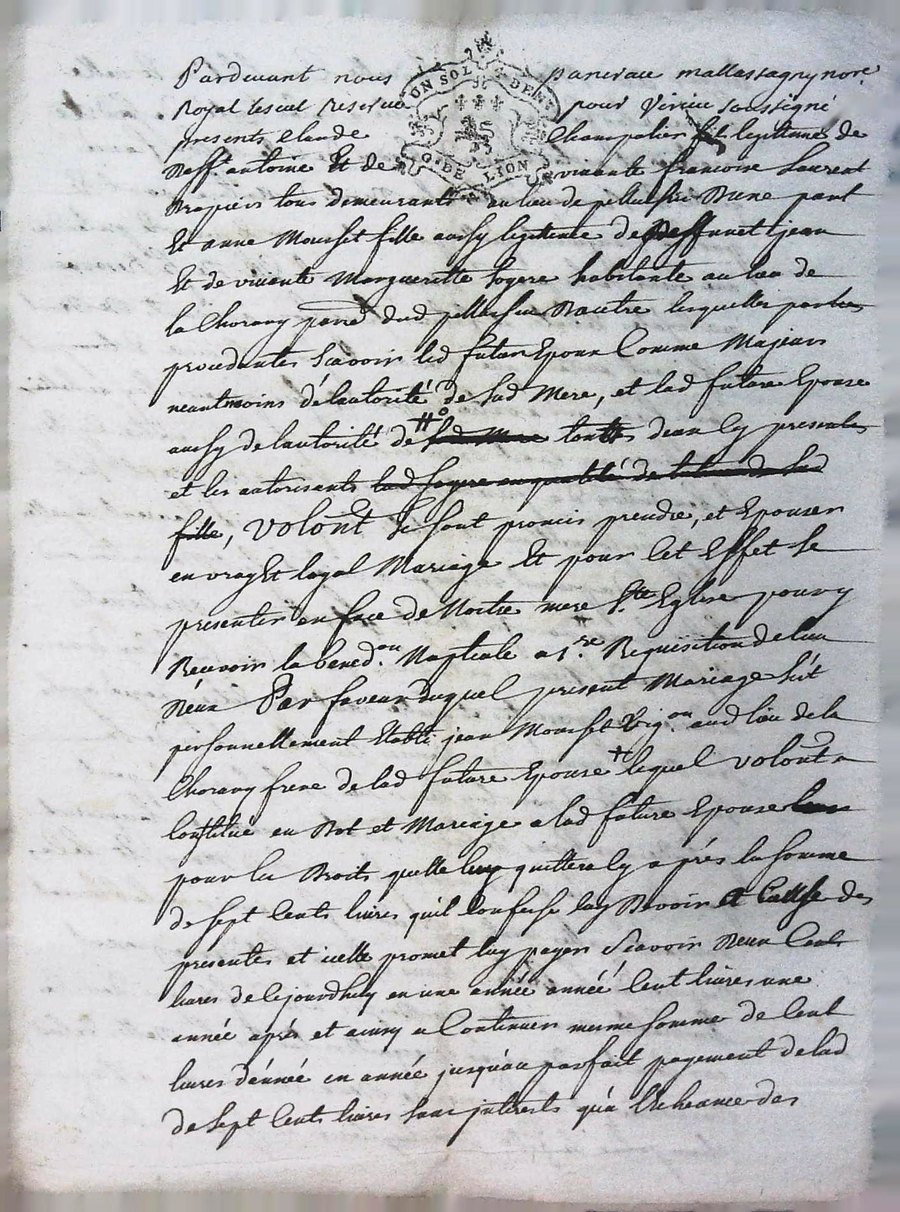 Pardevant nous pancrace mallassagny no.re
Royal es cut reservé pour vivieu soussigné
UN SOL DENI
G. DE LION
presents Claude Champalier fils legitimes de
deff.t antoine Et de vivante francoise Laurent
Drapiers tous demeurants au lieu de pellussin d'une part
Et anne Mousset fille aussy legitime de deffunct jean
Et de vivante Margueritte sogere habitante au lieu de
la Chorary parr.e dud pellussin D'autre lesquelles parties
procedantes Scavoir led futur Epoux Comme Majeur
neantmoins de l'autorité de sad Mere, et lad future Epouse
aussy de l'autorité de sad Mere touttes deux Cy presentes
et les autorisents lad sogere en qualité de sad
fille, volont.t se sont promis prendre, et Epouser
en vray Et loyal Mariage Et pour Cet Effet se
presenter en face de Nostre mere S.te Eglise pour y
Recevoir la bened.on Nuptiale a 1.re Requisition de l'un
d'eux Par faveur duquel present Mariage s'est
personnellement Etabli jean Mousset Vig.on aud lieu de la
Chorary frere de lad future Epouse lequel volont.t a
Constitué en Dot et Mariage a lad future Epouse
pour les Droits quelle luy quittera Cy après la somme
de sept Cents livres quil Confesse luy Devoir et Cause des
presentes et icelle promet luy payer Scavoir deux Cents
livres de Cejourdhuy en une année année Cent livres une
année après et ainsy a Continuer meme somme de Cent
livres d'énnée en année jusquau parfait payement de lad
de sept Cents livres sans interests qu'a Echeance des